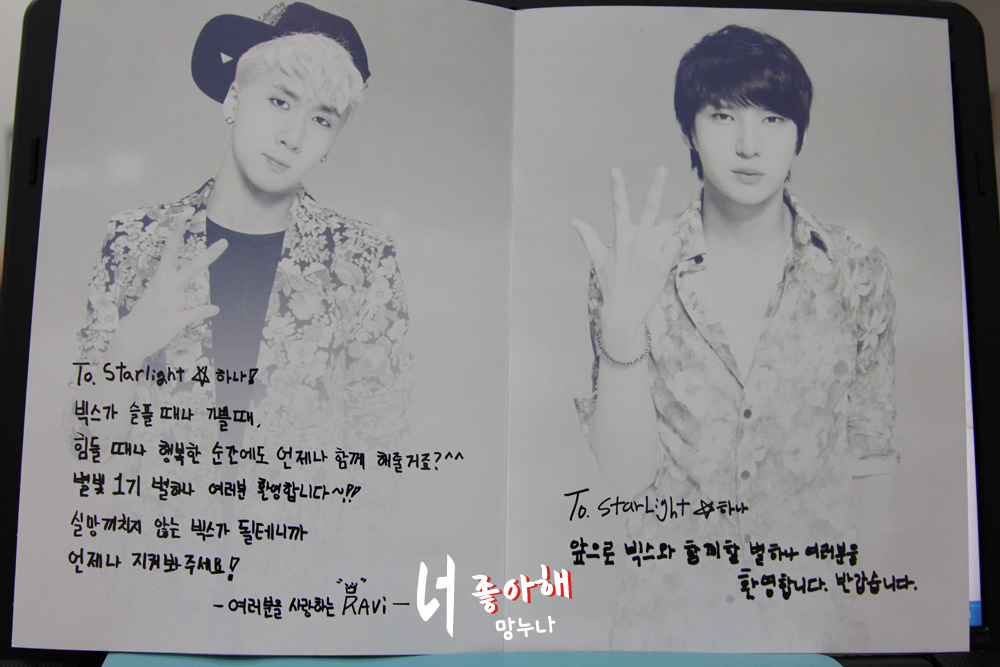 To. Starlight ☆하나!
빅스가 슬플 때나 기쁠때,
힘들 때나 행복한 순간에도 언제나 함께 해줄거죠?^^
별빛 1기 별하나 여러분 환영합니다~!!
실망끼치지 않는 빅스가 될테니까
언제나 지켜봐주세요!
- 여러분을 사랑하는 "RAVi" -
To. StarLight ☆하나
앞으로 빅스와 함께할 별하나 여러분을
환영합니다. 반갑습니다.
너 좋아해
망누나